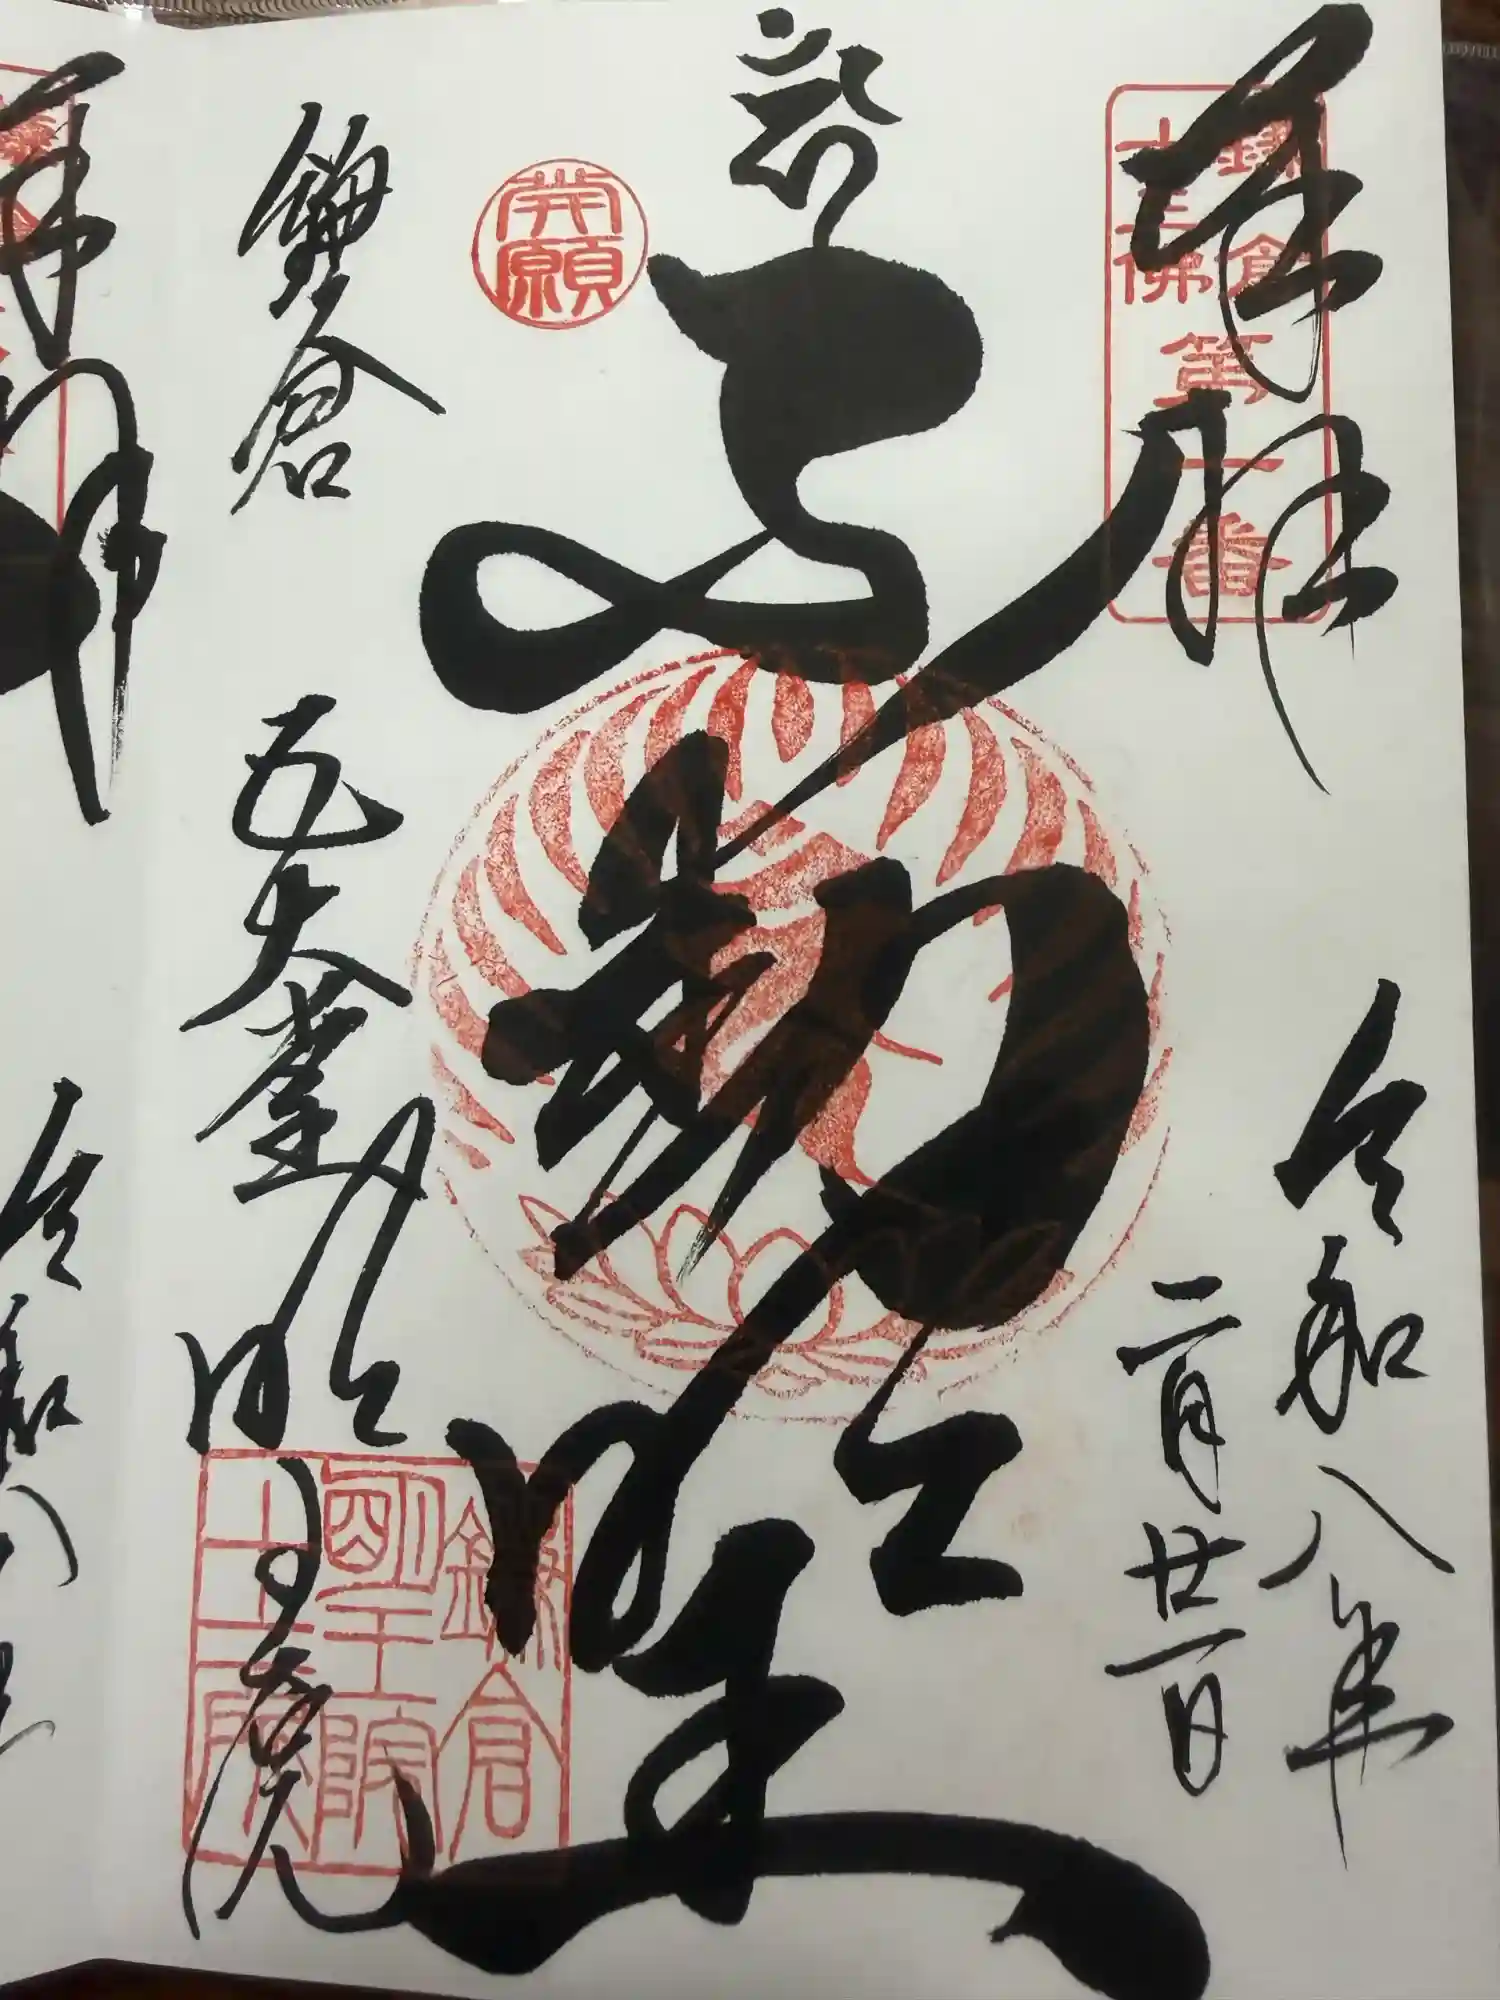 奉拝
鎌倉
十三佛
第一番
令和八年
二月廿一日
不動明王
発願
鎌倉
五大堂
明王院
鎌倉
明王院